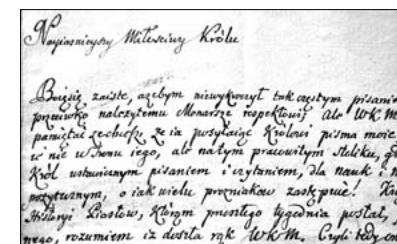 Nayiasnieyszy Miłościwy Królu
Boięsię zaiste, ażebym niewykroczył tak częstym pisanie
przeciwko należytemu Monarsze respektowi; Ale WKM.
pamiętać zechce, że ia posyłaiąc Królowi pisma moie
nie w tronu iego, ale na tym pracowitym stoliku, g
Król ustawicznym pisaniem i czytaniem, dla nauk i n
pożytecznym, o iak wielu prozniakow zastępuie!
Historyi Piastow, którąm przeszłego tygodnia posłał,
rozumiem iż doszła rąk WKM. Czyli będę